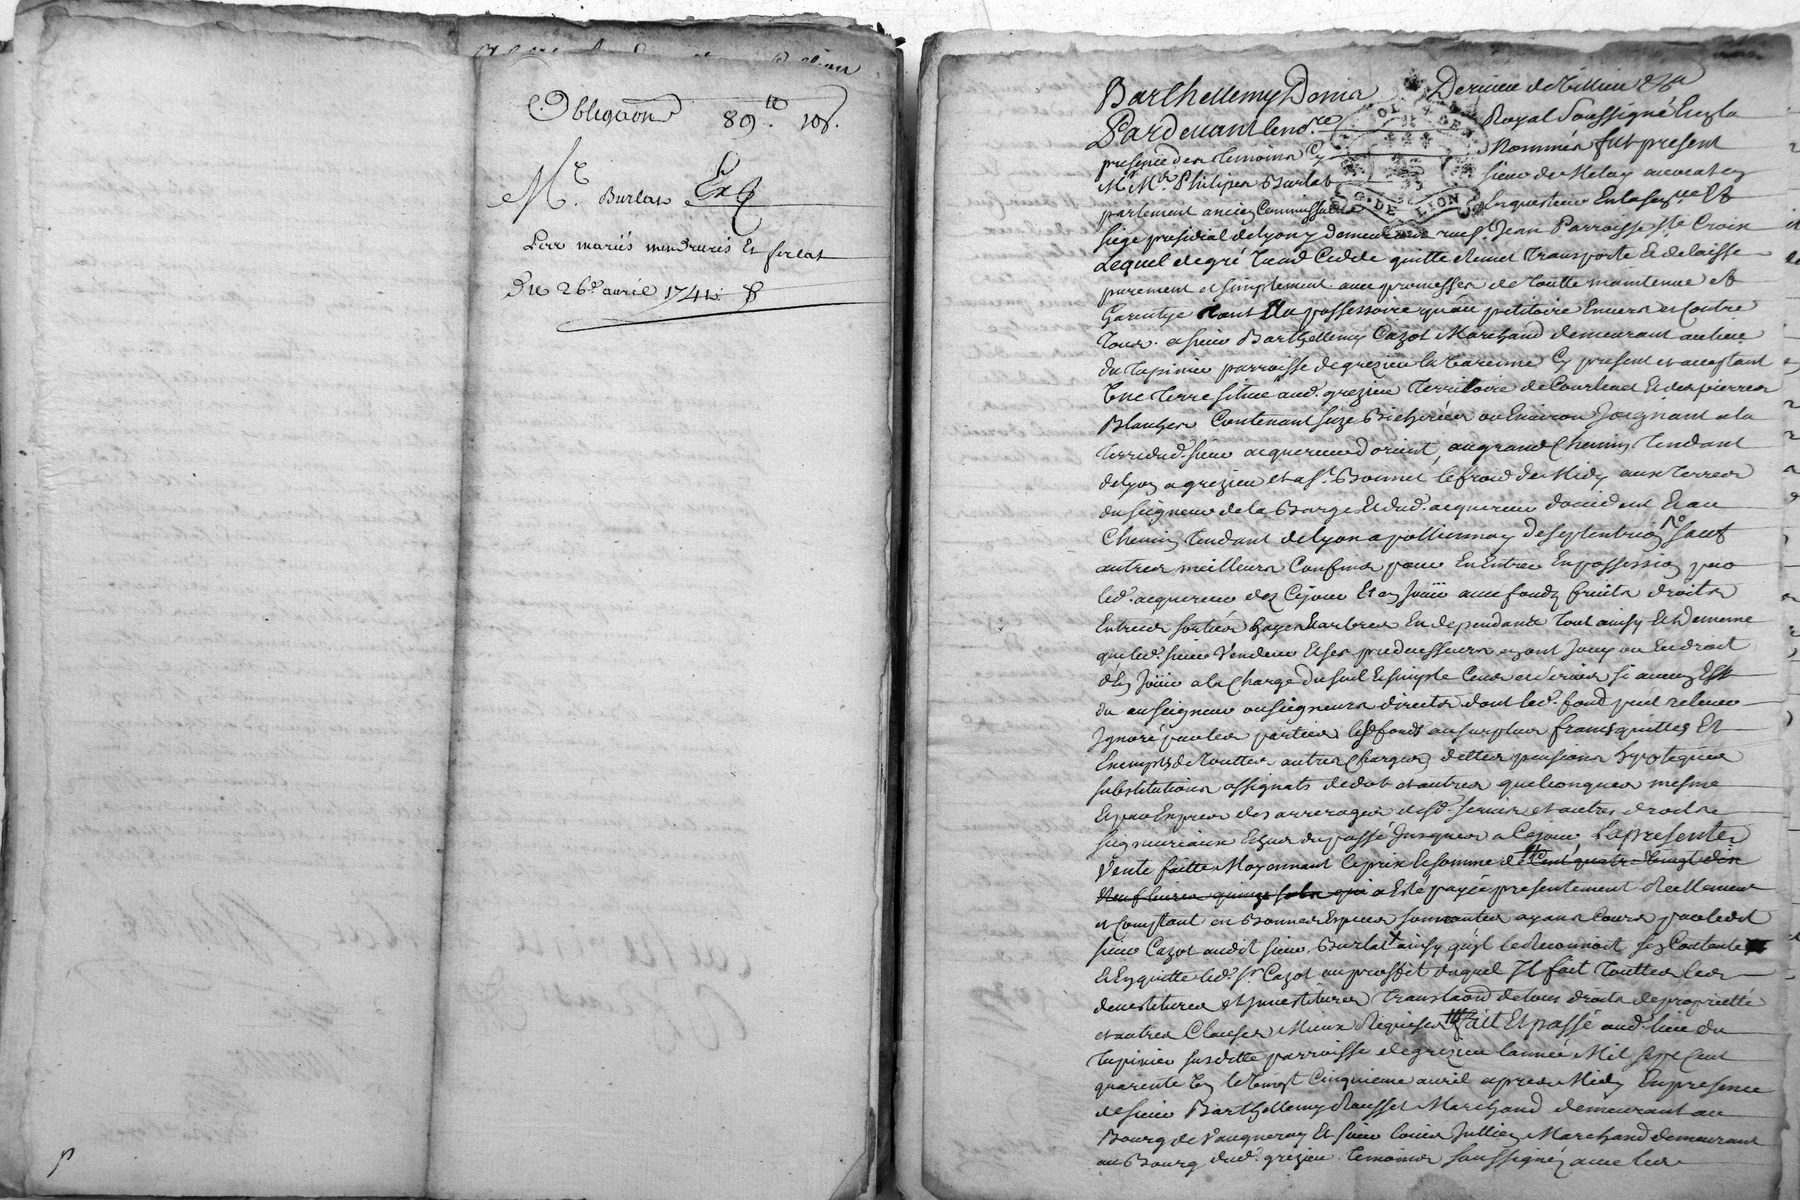 Obligaōn 89 ᵗᵗ 10 s.
Mᵉ. Burlat
Les mariés
Du 26ᵉ avril 1741.
Barthellemy
Pardevant le no.ʳᵉ Royal Soussigné Et En la
presence des temoins Cy Nommés fut present
Mʳ Mᵉ. Philipes Burlat sieur de Melay avocat En
parlement ancien Commissaire Enquesteur En la Senᶜᵉᵉ Et
siege presidial de lyon y demeurant rue Sᵗ Jean Parroisse Sᵗᵉ Croix
Lequel de gré vend Cedde quitte Remet Transporte Et delaisse
purement et simplement avec promesses de toutte maintenue et
Garentye tant Au possessoire qu'au petitoire Envers et Contre
tous. a sieur Barthellemy Cazot Marchand demeurant au lieu
du Tupinier parroisse de grezieu la Varenne Cy present et acceptant
Une terre située aud. grezieu Territoire de Et des pierres
Blanches Contenant seize Bicherées ou Environ Joignant a la
terre dud. sieur acquereur d'orient, au grand Chemin Tendant
de lyon a grezieu et a Sᵗ. Bonnet le froid de Midy aux terres
du seigneur de la Barge Et dud. acquereur d'occident Et au
Chemin Tendant de lyon a pollionnay de septentrion sauf
autres meilleurs Confins pour En Entrer En possession par
led. acquereur dez Cejour Et En Joüir avec fonds fruits droits
Entrées sorties hayes Et arbres En dependants Tout ainsy Et De meme
que led. sieur Vendeur Et ses predecesseurs ayant Jouy ou Eu droit
d'En Joüir a la Charge du seul Et simple Cens et servis si aucun Est
du au seigneur ou seigneurs directs dont led. fond peut relever
Ignoré par les parties led. fonds au surplus francs quittes Et
Exempts de Touttes autres Charges dettes pensions hypoteques
substitutions assignats de dot et autres quelconques mesme
Et par Exprés des arrerages desd. servis et autres droits
seigneuriaux Echus du passé Jusques a Cejour La presente
Vente faitte Moyennant le prix Et somme de Cent quatre Vingt dix
Neuf livres quinze sols qui a Eté payée presentement Reellement
et Comptant en Bonnes Especes sonnantes ayans Cours par ledit
sieur Cazot audit sieur Burlat ainsy qu'il le Reconnoit s'En Contente
Et En quitte led. sʳ Cazot au proffit duquel Il fait Touttes les
devestitures et Investitures Translaōn de tous droits de proprietté
et autres Clauses Mieux Requises Fait Et passé aud. lieu du
tupinier susditte parroisse de grezieu L'année Mil sept Cent
quarente Un le Vingt Cinquieme avril apres Midy En presence
de sieur Barthellemy Rousset Marchand demeurant au
Bourg de Vaugneray Et sieur louis Jullien Marchand demeurant
au Bourg dud. grezieu temoins soussignés avec les
G. DE LION